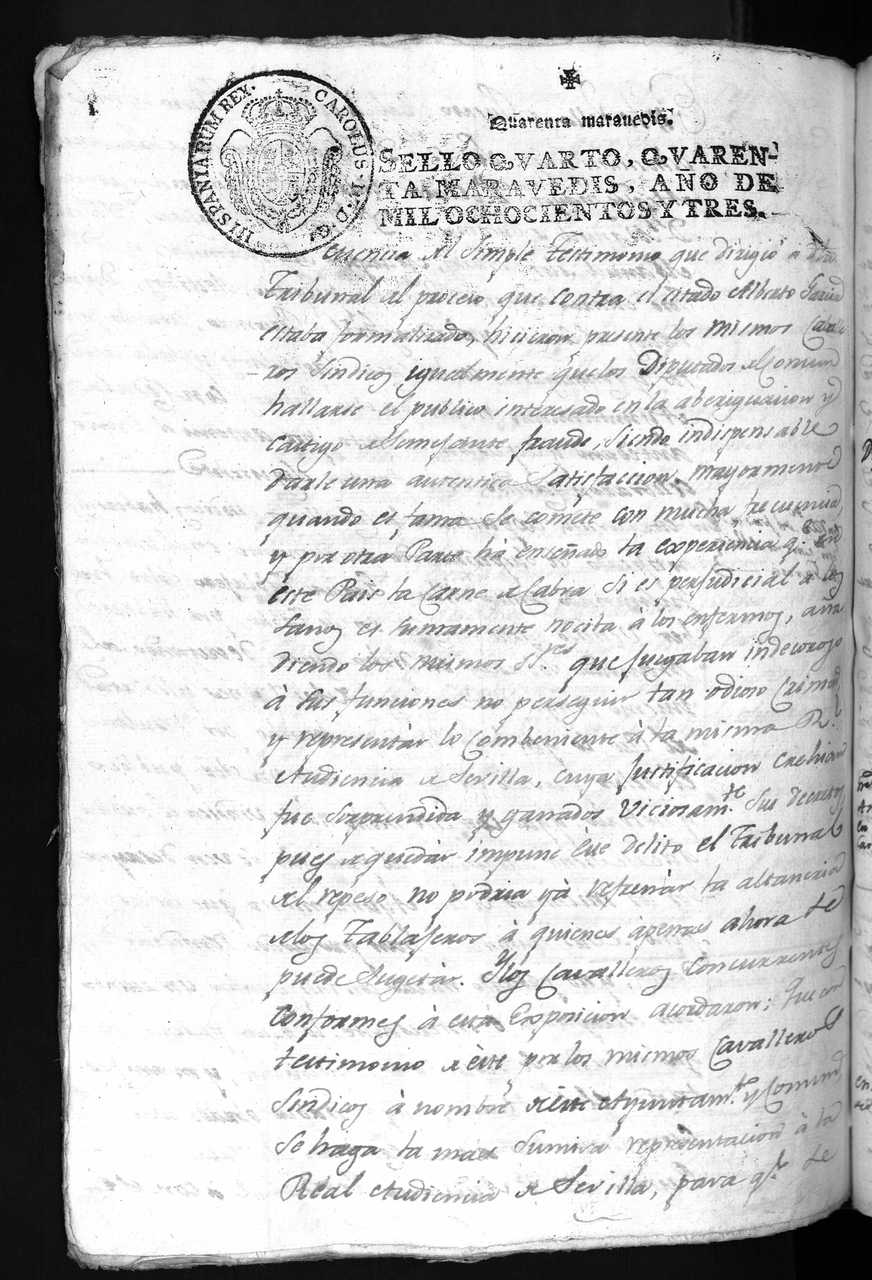 HISPANIARUM REX. CAROLUS. IV. D. G.
Quarenta maravedis.
SELLO QVARTO, QVAREN-
TA MARAVEDIS, AÑO DE
MIL OCHOCIENTOS Y TRES.
cuencia del Simple testimonio que dirigió a dicho
Tribunal del proceso que contra el citado Alberto
estaba formalizado, hicieron presente los mismos Cavalle
ros Sindicos ygualmente que los Diputados del Comun
hallarse el publico interesado en la aberiguacion y
castigo de Semejante fraude, siendo indispensable
darle una autentica Satisfaccion, mayormente
quando es fama se comete con mucha frecuencia,
y por otra Parte há enseñado la experiencia q.e en
este Pais la Carne de Cabra si es perjudicial a los
sanos es sumamente nociba á los enfermos, aña
diendo los mismos S.res que juzgaban indecoroso
á sus funciones no perseguir tan odioso Crimen,
y representar lo combeniente á la misma R.l
Audiencia de Sevilla, cuya justificacion crehian
fue sorprendida y ganados viciosam.te sus decretos,
pues de quedar impune ese delito el Tribunal
del repeso no podria yá refrenar la altaneria
de los Tablajeros á quienes apenas ahora se
puede sugetar. Y los Cavalleros concurrentes
conformes á esta Exposicion acordaron: Que con
testimonio de este por los mismos Cavalleros
Sindicos á nombre de este Ayuntam.to y Comun,
se haga la mas sumisa representacion á la
Real Audiencia de Sevilla, para q.e se